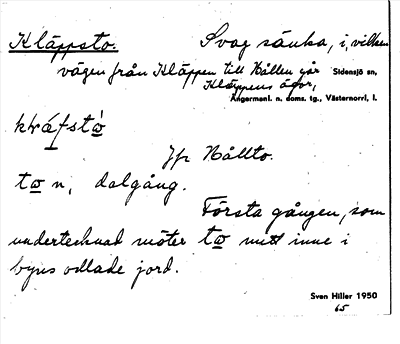 Kläppsto. Svag sänka, i, vilken
vägen från Kläppen till Nållen går Sidensjö sn,
Kläppens ägor,
Ångermanl. n. doms. tg., Västernorrl. l.
Jfr Nållto.
to n, dalgång.
Första gången, som
undertecknad möter to mitt inne i
byns odlade jord.
Sven Hiller 1950
65